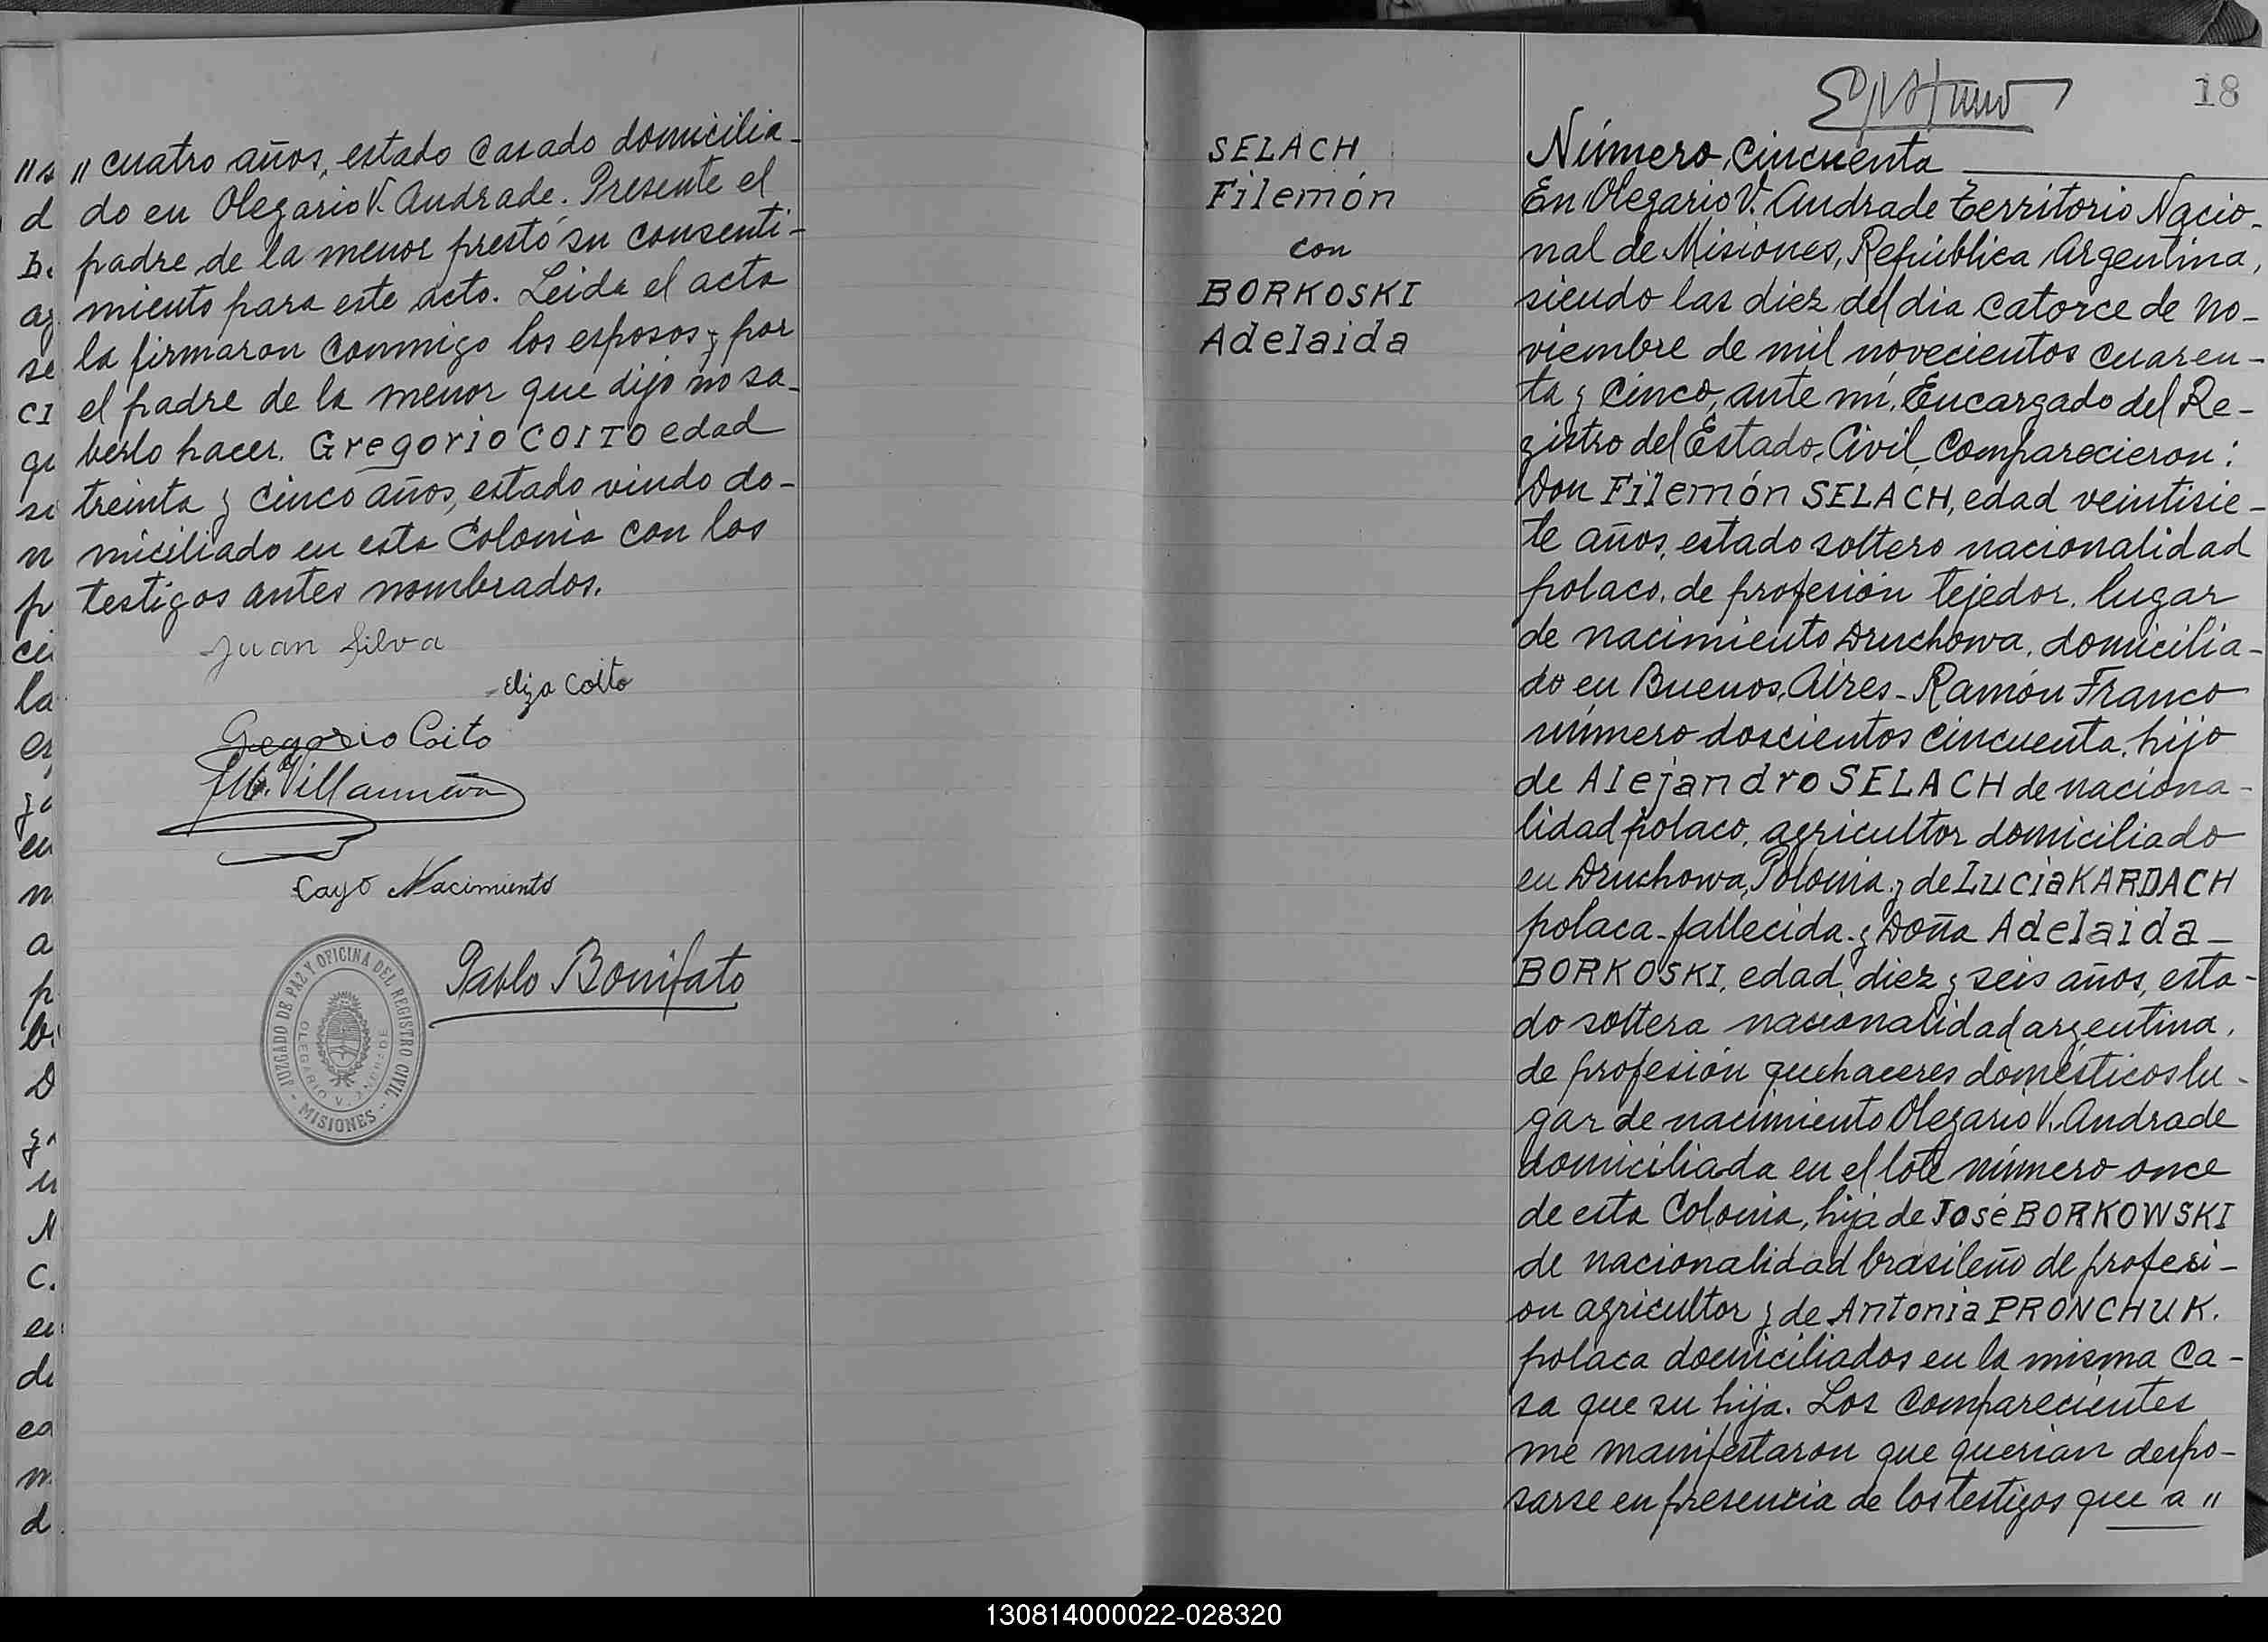 " cuatro años, estado casado domicilia-
do en Olegario V. Andrade. Presente el
padre de la menor prestó su consenti-
miento para este acto. Leida el acta
la firmaron conmigo los esposos y por
el padre de la menor que dijo no sa-
berlo hacer. Gregorio COITO edad
treinta y cinco años, estado viudo do-
miciliado en esta Colonia con los
testigos antes nombrados.
Juan Silva
Eliza Coito
Gregorio Coito
Villanueva
Cayo Nacimiento
Pablo Bonifato
JUZGADO DE PAZ Y OFICINA DEL REGISTRO CIVIL
OLEGARIO V. ANDRADE
- MISIONES -
18
SELACH
Filemón
con
BORKOSKI
Adelaida
Número Cincuenta
En Olegario V. Andrade Territorio Nacio-
nal de Misiones, República Argentina,
siendo las diez del dia catorce de no-
viembre de mil novecientos cuaren-
ta y cinco, ante mi, Encargado del Re-
gistro del Estado Civil, Comparecieron:
Don Filemón SELACH, edad veintisie-
te años, estado soltero nacionalidad
polaco, de profesión tejedor, lugar
de nacimiento Druchowa, domicilia-
do en Buenos Aires - Ramón Franco
número doscientos cincuenta, hijo
de Alejandro SELACH de naciona-
lidad polaco, agricultor domiciliado
en Druchowa, Polonia, y de Lucia KARDACH
polaca - fallecida - y Doña Adelaida -
BORKOSKI, edad diez y seis años, esta-
do soltera nacionalidad argentina,
de profesión quehaceres domésticos lu-
gar de nacimiento Olegario V. Andrade
domiciliada en el lote número once
de esta Colonia, hija de José BORKOWSKI
de nacionalidad brasileño de profesi-
on agricultor y de Antonia PRONCHUK.
polaca domiciliados en la misma ca-
sa que su hija. Los comparecientes
me manifestaron que querian despo-
sarse en presencia de los testigos que a "
130814000022-028320